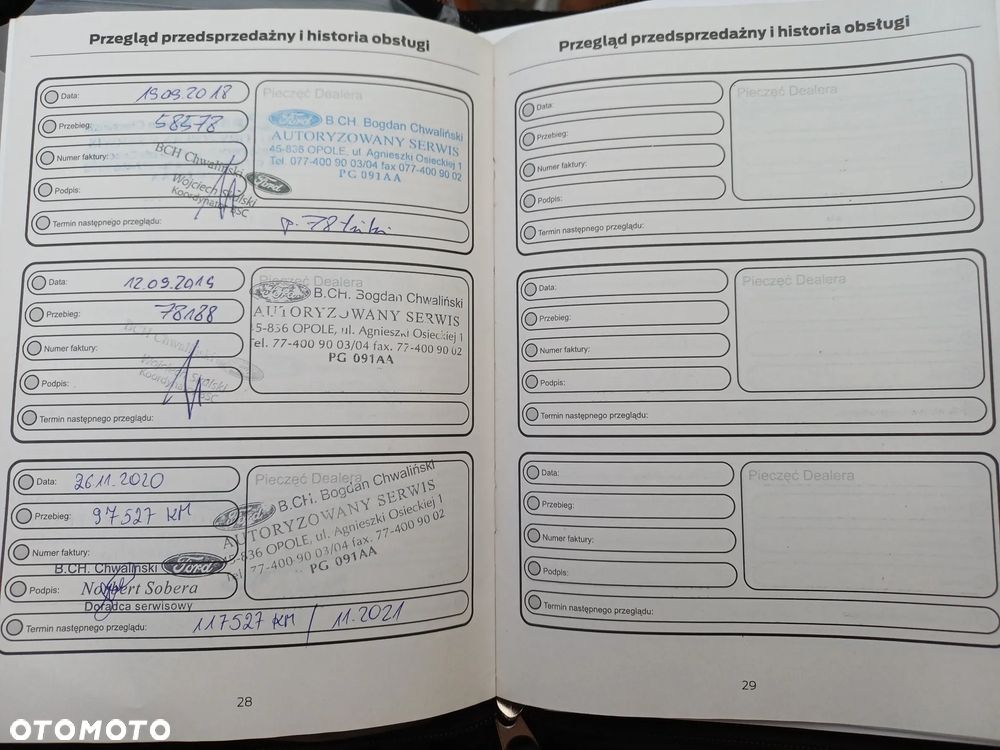 Przegląd przedsprzedażny i historia obsługi
Data: 19.09.2018
Pieczęć Dealera
Ford B.CH. Bogdan Chwaliński
Przebieg: 58578
AUTORYZOWANY SERWIS
45-836 OPOLE, ul. Agnieszki Osieckiej 1
Numer faktury:
Tel. 077-400 90 03/04 fax 077-400 90 02
PG 091AA
BCH Chwaliński Ford
Podpis: Wojciech Skalski
Koordynator BSC
Termin następnego przeglądu: p. 78
Data: 12.09.2019
Pieczęć Dealera
Ford B.CH. Bogdan Chwaliński
Przebieg: 78188
AUTORYZOWANY SERWIS
45-836 OPOLE, ul. Agnieszki Osieckiej 1
Numer faktury:
Tel. 77-400 90 03/04 fax. 77-400 90 02
PG 091AA
BCH Chwaliński
Podpis: Wojciech Skalski
Koordynator BSC
Termin następnego przeglądu:
Data: 26.11.2020
Pieczęć Dealera
Ford B.CH. Bogdan Chwaliński
Przebieg: 97527 KM
AUTORYZOWANY SERWIS
45-836 OPOLE, ul. Agnieszki Osieckiej 1
Numer faktury:
Tel. 77-400 90 03/04 fax. 77-400 90 02
PG 091AA
B.CH. Chwaliński Ford
Podpis: Norbert Sobera
Doradca serwisowy
Termin następnego przeglądu: 117527 KM / 11.2021
28
Przegląd przedsprzedażny i historia obsługi
Data:
Pieczęć Dealera
Przebieg:
Numer faktury:
Podpis:
Termin następnego przeglądu:
Data:
Pieczęć Dealera
Przebieg:
Numer faktury:
Podpis:
Termin następnego przeglądu:
Data:
Pieczęć Dealera
Przebieg:
Numer faktury:
Podpis:
Termin następnego przeglądu:
29
OTOMOTO